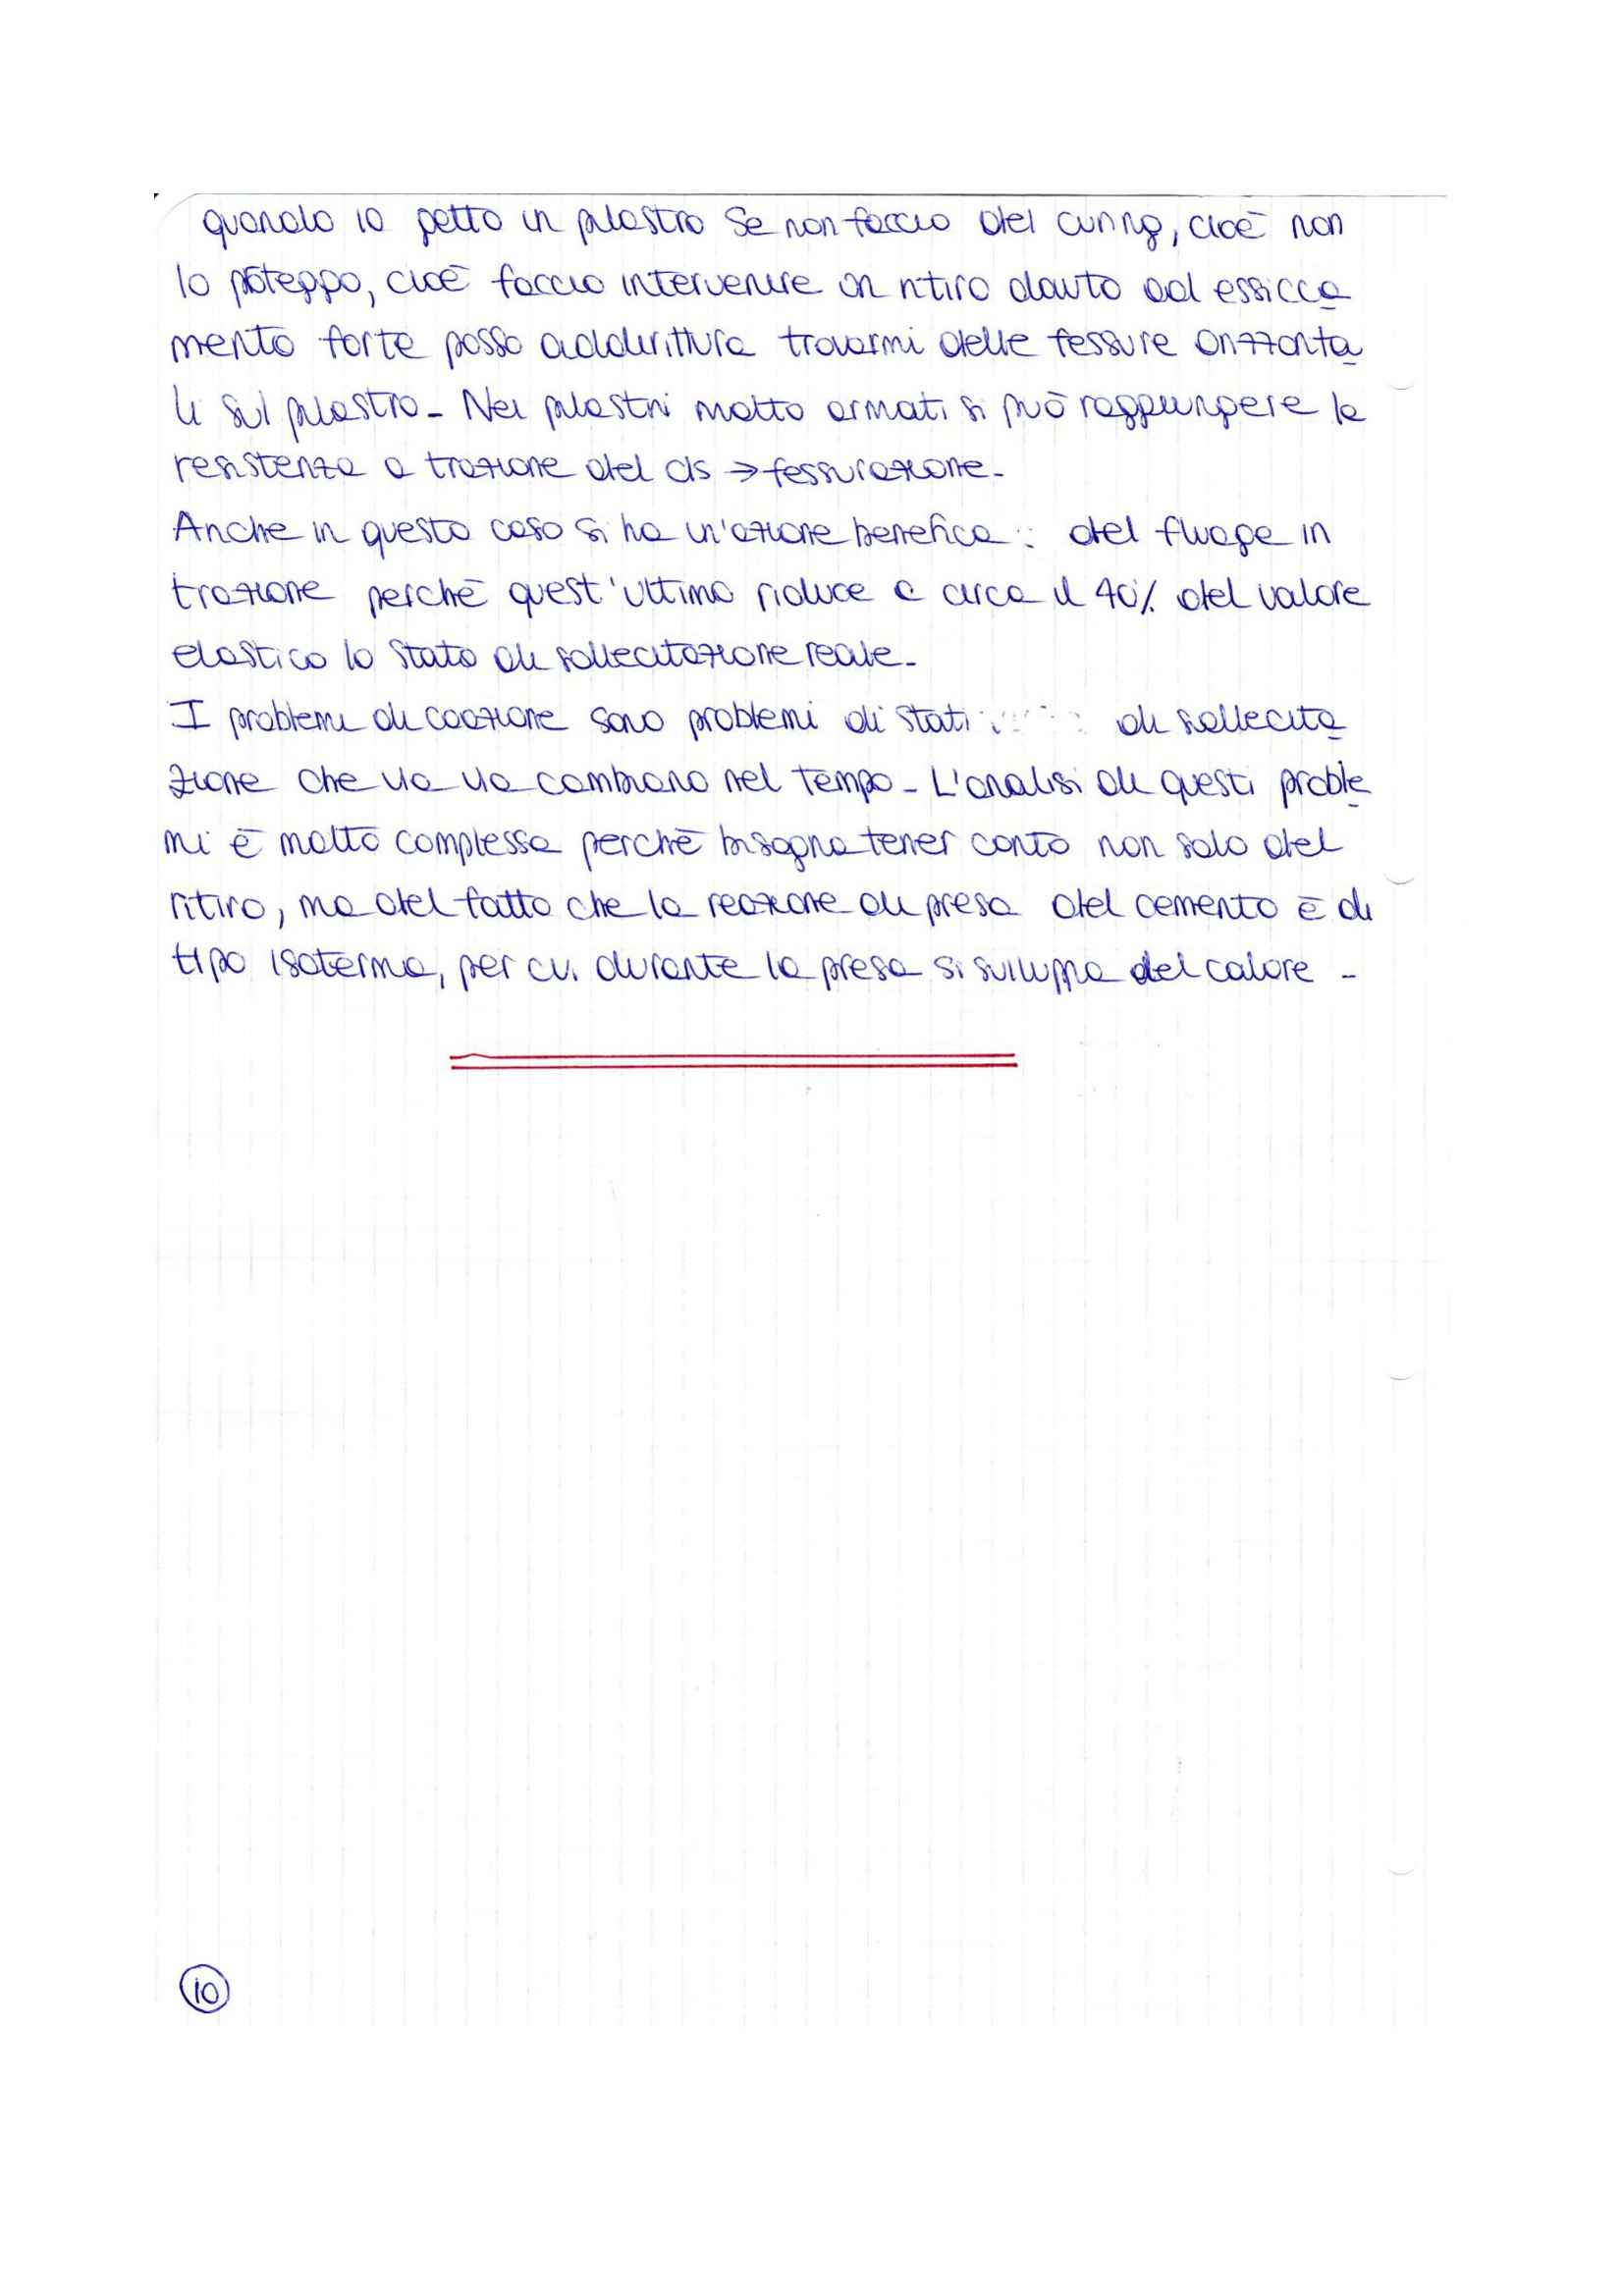 quando io getto un pilastro se non faccio del curing, cioè non
lo proteggo, cioè faccio intervenire un ritiro dovuto ad essicca
mento forte posso addirittura trovarmi delle fessure orizzonta
li sul pilastro. Nei pilastri molto armati si può raggiungere la
resistenza a trazione del cls → fessurazione.
Anche in questo caso si ha un'azione benefica : del fluage in
trazione perchè quest'ultimo riduce a circa il 40% del valore
elastico lo stato di sollecitazione reale.
I problemi di coazione sono problemi di stati di sollecita
zione che via via cambiano nel tempo. L'analisi di questi proble
mi è molto complessa perchè bisogna tener conto non solo del
ritiro, ma del fatto che la reazione di presa del cemento è di
tipo isoterma, per cui durante la presa si sviluppa del calore.
10